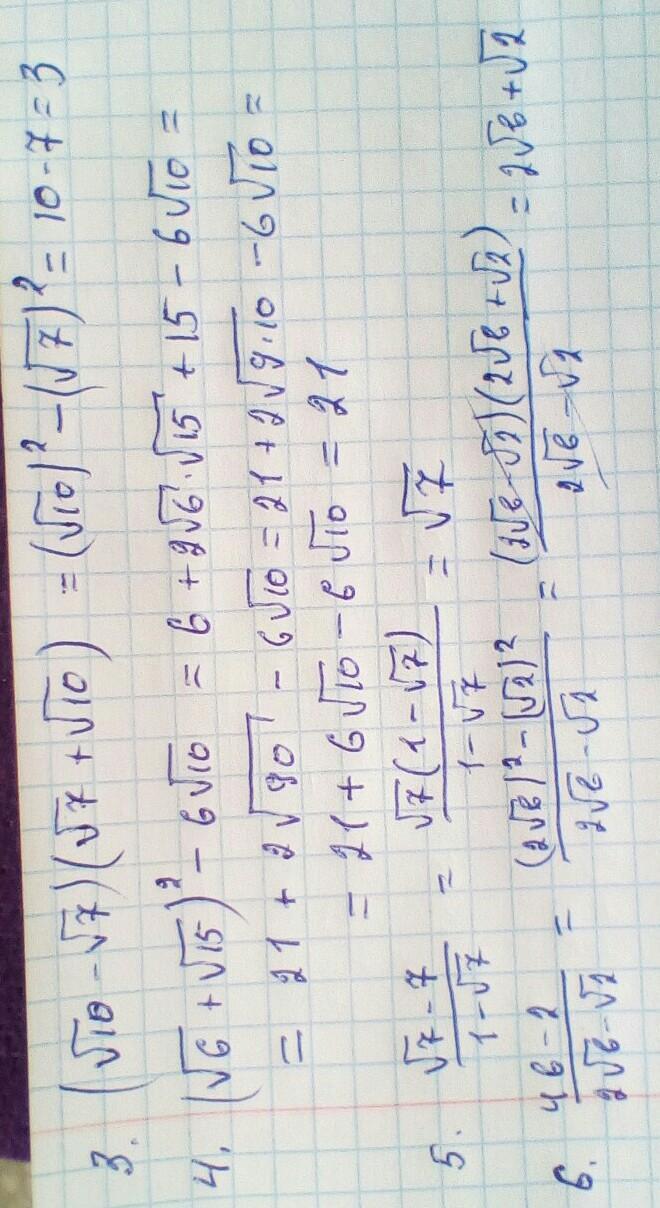 3. (√10 - √7)(√7 + √10) = (√10)² - (√7)² = 10 - 7 = 3
4. (√6 + √15)² - 6√10 = 6 + 2√6·√15 + 15 - 6√10 =
= 21 + 2√90 - 6√10 = 21 + 2√9·10 - 6√10 =
= 21 + 6√10 - 6√10 = 21
5. (√7 - 7)/(1 - √7) = √7(1 - √7)/(1 - √7) = √7
6. (4в - 2)/(2√в - √2) = ((2√в)² - (√2)²)/(2√в - √2) = (2√в - √2)(2√в + √2)/(2√в - √2) = 2√в + √2